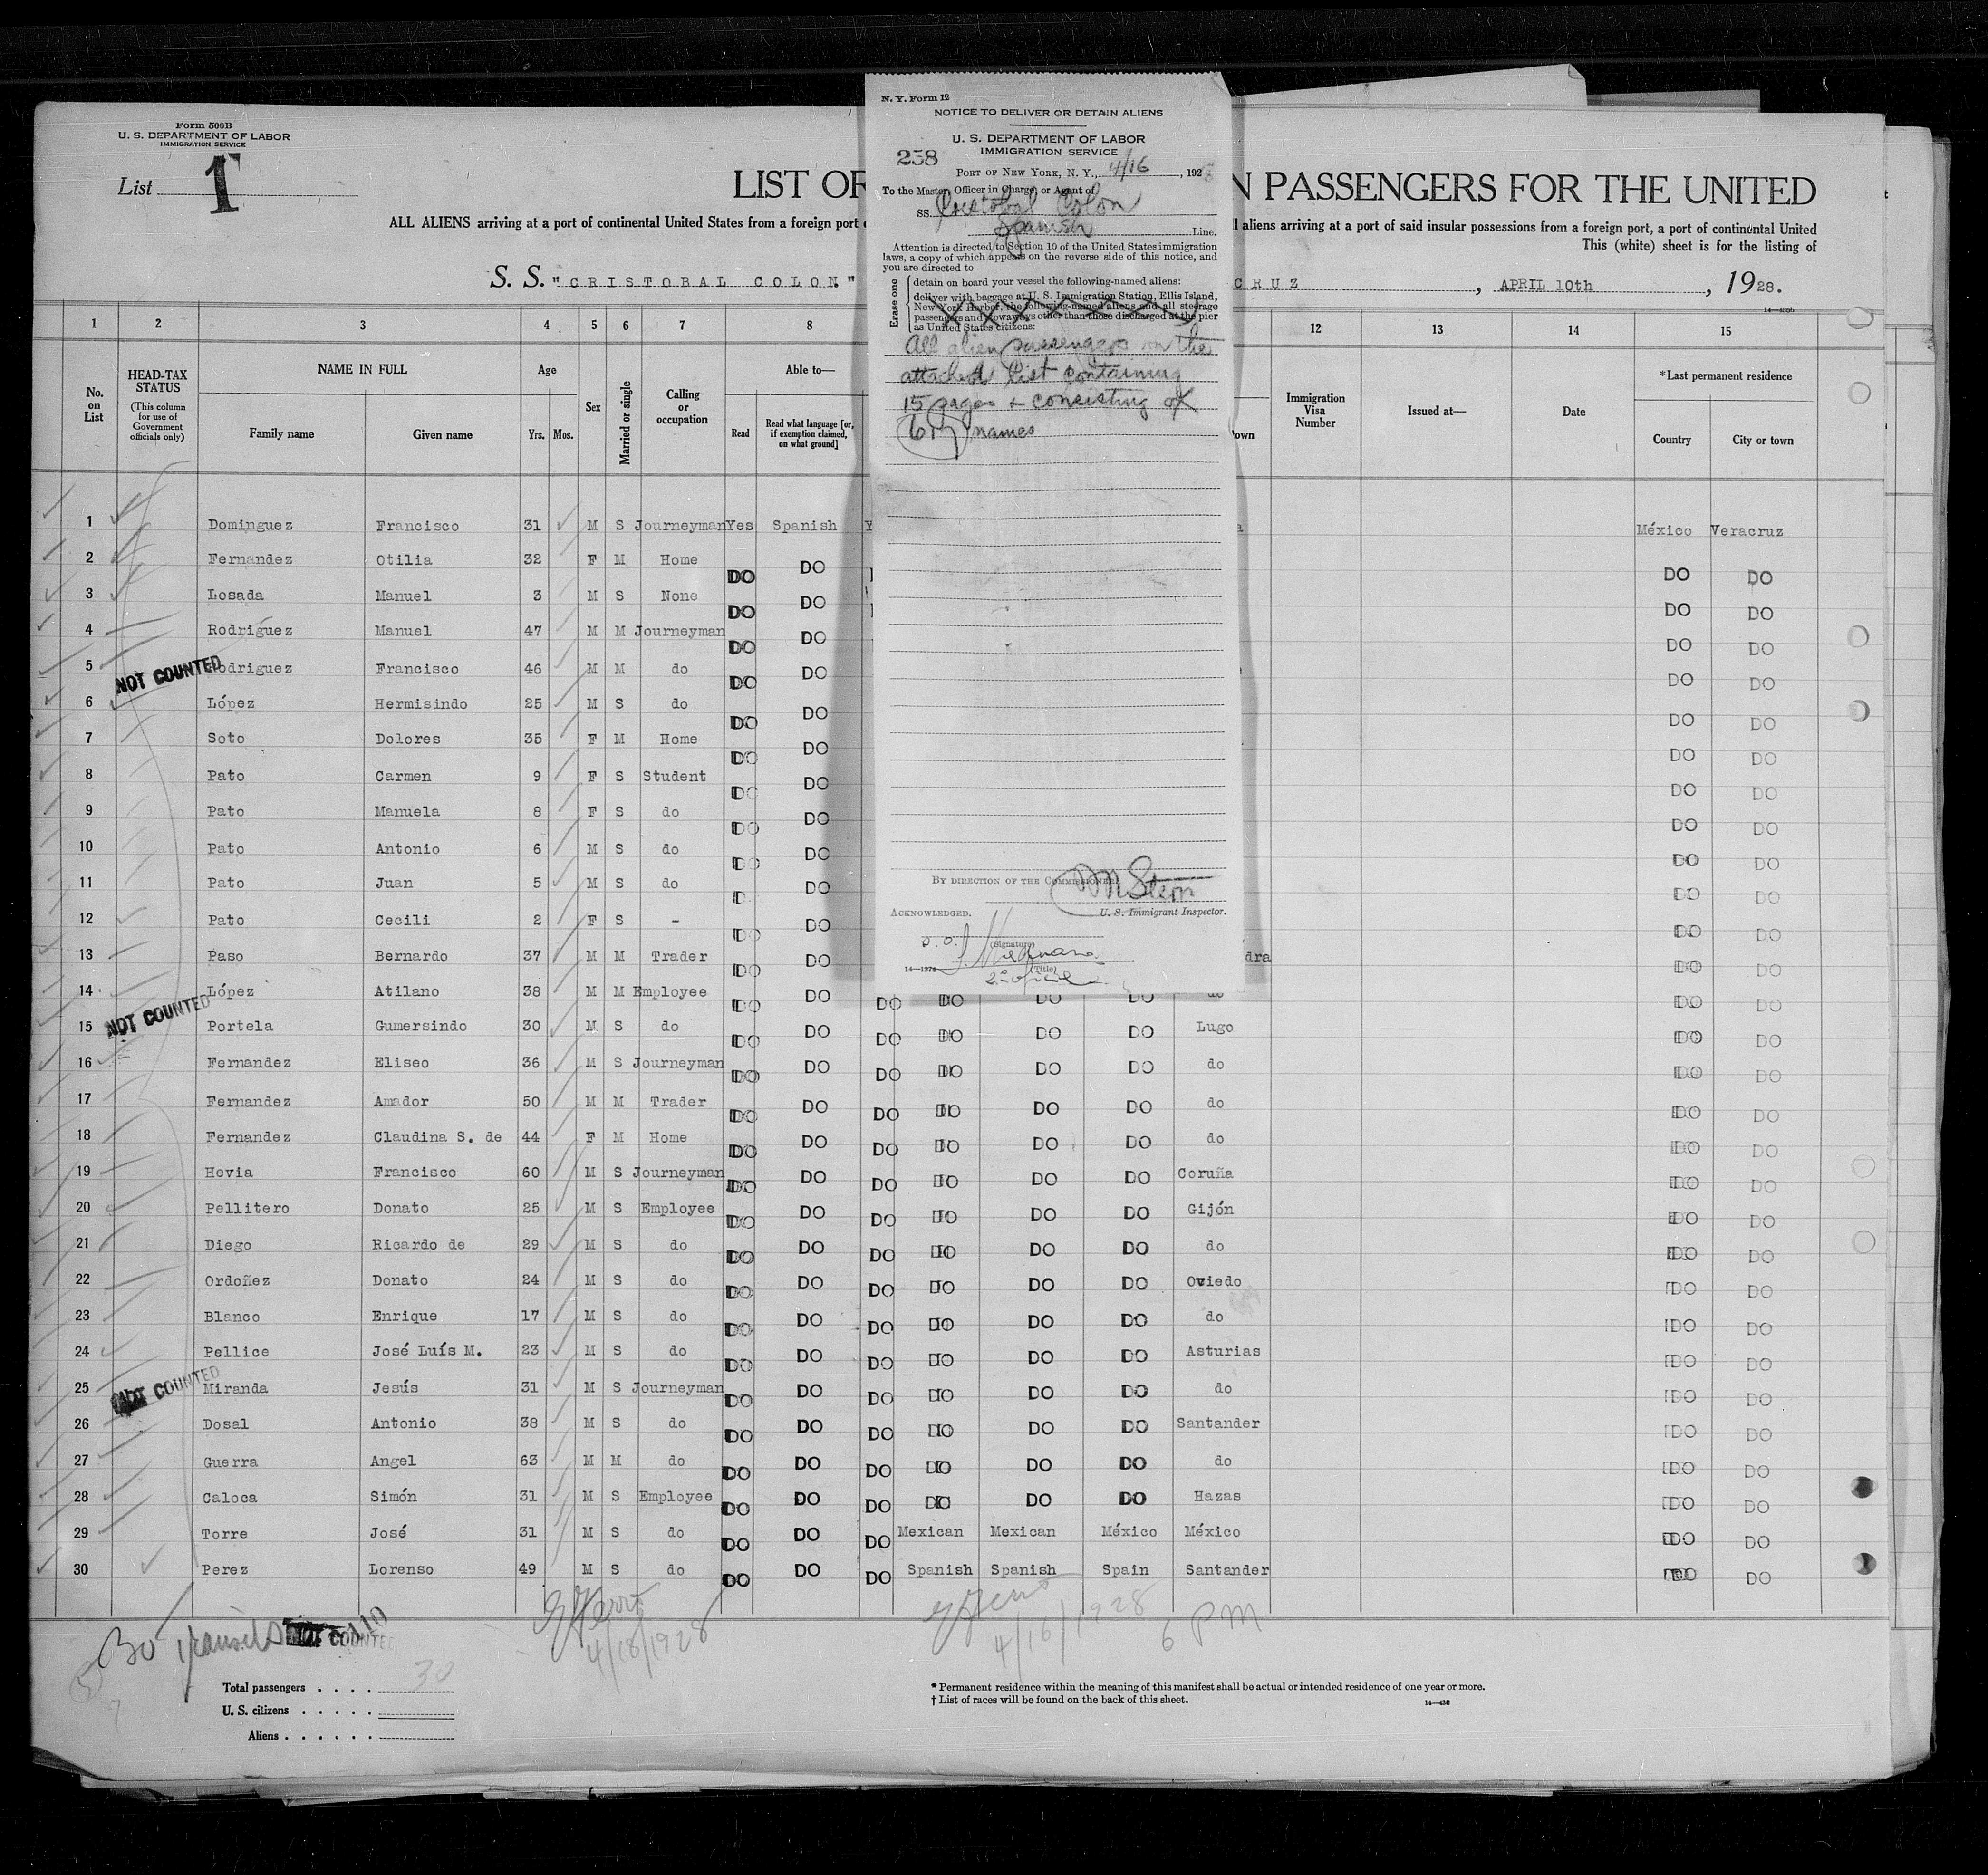 Form 500B
U. S. DEPARTMENT OF LABOR
IMMIGRATION SERVICE
List 1
LIST OF
N PASSENGERS FOR THE UNITED
ALL ALIENS arriving at a port of continental United States from a foreign port
l aliens arriving at a port of said insular possessions from a foreign port, a port of continental United
This (white) sheet is for the listing of
S. S. "CRISTOBAL COLON"
CRUZ, APRIL 10th, 1928.
N. Y. Form 12
NOTICE TO DELIVER OR DETAIN ALIENS
U. S. DEPARTMENT OF LABOR
IMMIGRATION SERVICE
258
PORT OF NEW YORK, N. Y., 4/16, 192
To the Master, Officer in Charge, or Agent of
SS. Cristobal Colon
Spanish Line.
Attention is directed to Section 10 of the United States immigration
laws, a copy of which appears on the reverse side of this notice, and
you are directed to
Erase one
detain on board your vessel the following-named aliens:
deliver with baggage at U. S. Immigration Station, Ellis Island,
New York Harbor, the following-named aliens and all steerage
passengers and stowaways other than those discharged at the pier
as United States citizens:
All alien passengers on the
attached list containing
15 pages & consisting of
names
BY DIRECTION OF THE COMMISSIONER:
M Stern
U. S. Immigrant Inspector.
ACKNOWLEDGED.
(Signature)
(Title)
14—1374
14—430b
1 2 3 4 5 6 7 8 12 13 14 15
No. on List
HEAD-TAX STATUS
(This column for use of Government officials only)
NAME IN FULL
Family name
Given name
Age
Yrs. Mos.
Sex
Married or single
Calling or occupation
Able to—
Read
Read what language [or, if exemption claimed, on what ground]
own
Immigration Visa Number
Issued at—
Date
*Last permanent residence
Country
City or town
1 Dominguez Francisco 31 M S Journeyman Yes Spanish Y México Veracruz
2 Fernandez Otilia 32 F M Home DO DO DO DO
3 Losada Manuel 3 M S None DO DO DO DO
4 Rodríguez Manuel 47 M M Journeyman DO DO DO DO
NOT COUNTED
5 Rodriguez Francisco 46 M M do DO DO DO DO
6 López Hermisindo 25 M S do DO DO DO DO
7 Soto Dolores 35 F M Home DO DO DO DO
8 Pato Carmen 9 F S Student DO DO DO DO
9 Pato Manuela 8 F S do DO DO DO DO
10 Pato Antonio 6 M S do DO DO DO DO
11 Pato Juan 5 M S do D DO DO DO
12 Pato Cecili 2 F S - DO DO DO DO
13 Paso Bernardo 37 M M Trader DO DO dra DO DO
14 López Atilano 38 M M Employee DO DO DO DO DO DO do DO DO
NOT COUNTED
15 Portela Gumersindo 30 M S do DO DO DO DO DO DO Lugo DO DO
16 Fernandez Eliseo 36 M S Journeyman DO DO DO DO DO DO do DO DO
17 Fernandez Amador 50 M M Trader DO DO DO DO DO DO do DO DO
18 Fernandez Claudina S. de 44 F M Home DO DO DO DO DO DO do DO DO
19 Hevia Francisco 60 M S Journeyman DO DO DO DO DO DO Coruña DO DO
20 Pellitero Donato 25 M S Employee DO DO DO DO DO DO Gijón DO DO
21 Diego Ricardo de 29 M S do DO DO DO DO DO DO do DO DO
22 Ordoñez Donato 24 M S do DO DO DO DO DO DO Oviedo DO DO
23 Blanco Enrique 17 M S do DO DO DO DO DO DO do DO DO
24 Pellice José Luís M. 23 M S do DO DO DO DO DO DO Asturias DO DO
NOT COUNTED
25 Miranda Jesús 31 M S Journeyman DO DO DO DO DO DO do DO DO
26 Dosal Antonio 38 M S do DO DO DO DO DO DO Santander DO DO
27 Guerra Angel 63 M M do DO DO DO DO DO DO do DO DO
28 Caloca Simón 31 M S Employee DO DO DO DO DO DO Hazas DO DO
29 Torre José 31 M S do DO DO DO Mexican Mexican México México DO DO
30 Perez Lorenso 49 M S do DO DO DO Spanish Spanish Spain Santander DO DO
30 transits
COUNTED
4/18/1928
4/16/1928 6 PM
Total passengers . . . . 30
U. S. citizens . . . . .
Aliens . . . . . .
* Permanent residence within the meaning of this manifest shall be actual or intended residence of one year or more.
† List of races will be found on the back of this sheet.
14—430